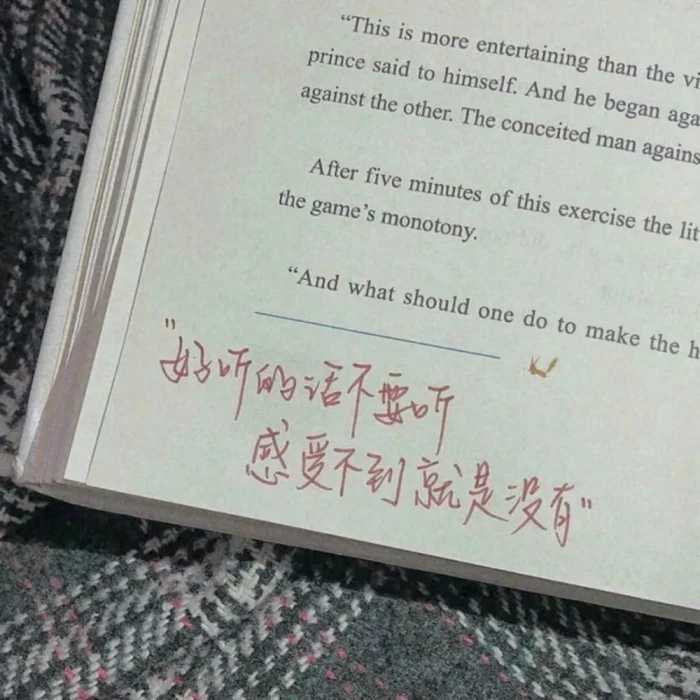 “This is more entertaining than the
prince said to himself. And he began
against the other. The conceited man
After five minutes of this exercise the
the game’s monotony.
“And what should one do to make the
"好听的话不要听
感受不到就是没有"